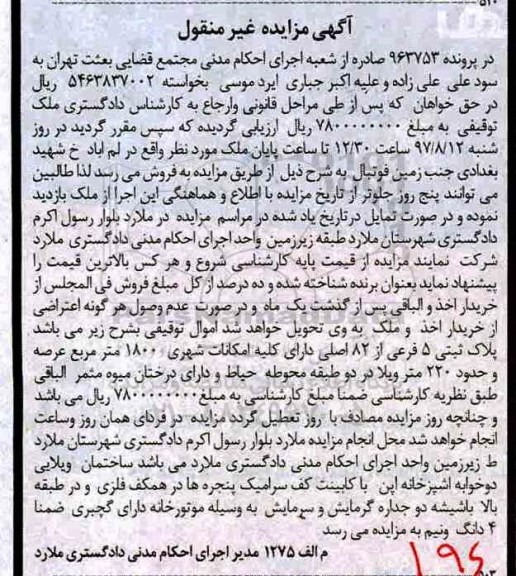 ۵۱۰
آگهی مزایده غیر منقول
در پرونده ۹۶۳۷۵۳ صادره از شعبه اجرای احکام مدنی مجتمع قضایی بعثت تهران به
سود علی علی زاده و علیه اکبر جباری ایرد موسی بخواسته ۵۴۶۳۸۳۷۰۰۲ ریال
در حق خواهان که پس از طی مراحل قانونی وارجاع به کارشناس دادگستری ملک
توقیفی به مبلغ ۷۸۰۰۰۰۰۰۰۰ ریال ارزیابی گردیده که سپس مقرر گردید در روز
شنبه ۹۷/۸/۱۲ ساعت ۱۲/۳۰ تا ساعت پایان ملک مورد نظر واقع در لم اباد خ شهید
بغدادی جنب زمین فوتبال به شرح ذیل از طریق مزایده به فروش می رسد لذا طالبین
می توانند پنج روز جلوتر از تاریخ مزایده با اطلاع و هماهنگی این اجرا از ملک بازدید
نموده و در صورت تمایل درتاریخ یاد شده در مراسم مزایده در ملارد بلوار رسول اکرم
دادگستری شهرستان ملارد طبقه زیرزمین واحد اجرای احکام مدنی دادگستری ملارد
شرکت نمایند مزایده از قیمت پایه کارشناسی شروع و هر کس بالاترین قیمت را
پیشنهاد نماید بعنوان برنده شناخته شده و ده درصد از کل مبلغ فروش فی المجلس از
خریدار اخذ و الباقی پس از گذشت یک ماه و در صورت عدم وصول هر گونه اعتراضی
از خریدار اخذ و ملک به وی تحویل خواهد شد اموال توقیفی بشرح زیر می باشد
پلاک ثبتی ۵ فرعی از ۸۲ اصلی دارای کلیه امکانات شهری ۱۸۰۰ متر مربع عرصه
و حدود ۲۲۰ متر ویلا در دو طبقه محوطه حیاط و دارای درختان میوه مثمر الباقی
طبق نظریه کارشناسی ضمنا مبلغ کارشناسی به مبلغ ۷۸۰۰۰۰۰۰۰۰ ریال می باشد
و چنانچه روز مزایده مصادف با روز تعطیل گردد مزایده در فردای همان روز وساعت
انجام خواهد شد محل انجام مزایده ملارد بلوار رسول اکرم دادگستری شهرستان ملارد
ط زیرزمین واحد اجرای احکام مدنی دادگستری ملارد می باشد ساختمان ویلایی
دوخوابه اشپزخانه اپن با کابینت کف سرامیک پنجره ها در همکف فلزی و در طبقه
بالا باشیشه دو جداره گرمایش و سرمایش به وسیله موتورخانه دارای گچبری ضمنا
۴ دانگ ونیم به مزایده می رسد
م الف ۱۲۷۵ مدیر اجرای احکام مدنی دادگستری ملارد
۱۹۶